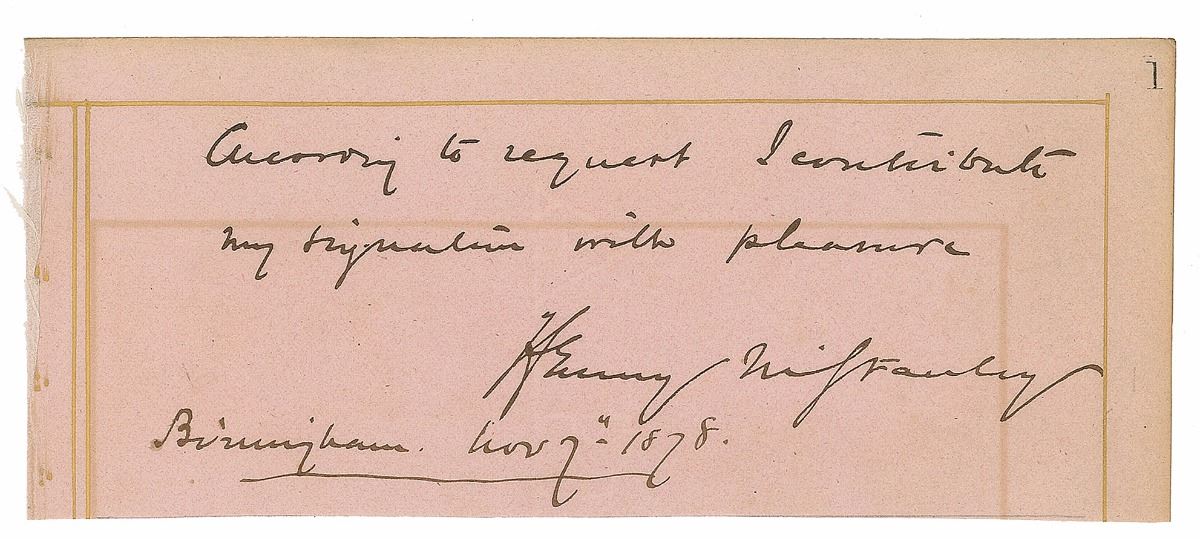 1
According to request I contribute
my signature with pleasure
Henry M Stanley
Birmingham. Nov 7" 1878.